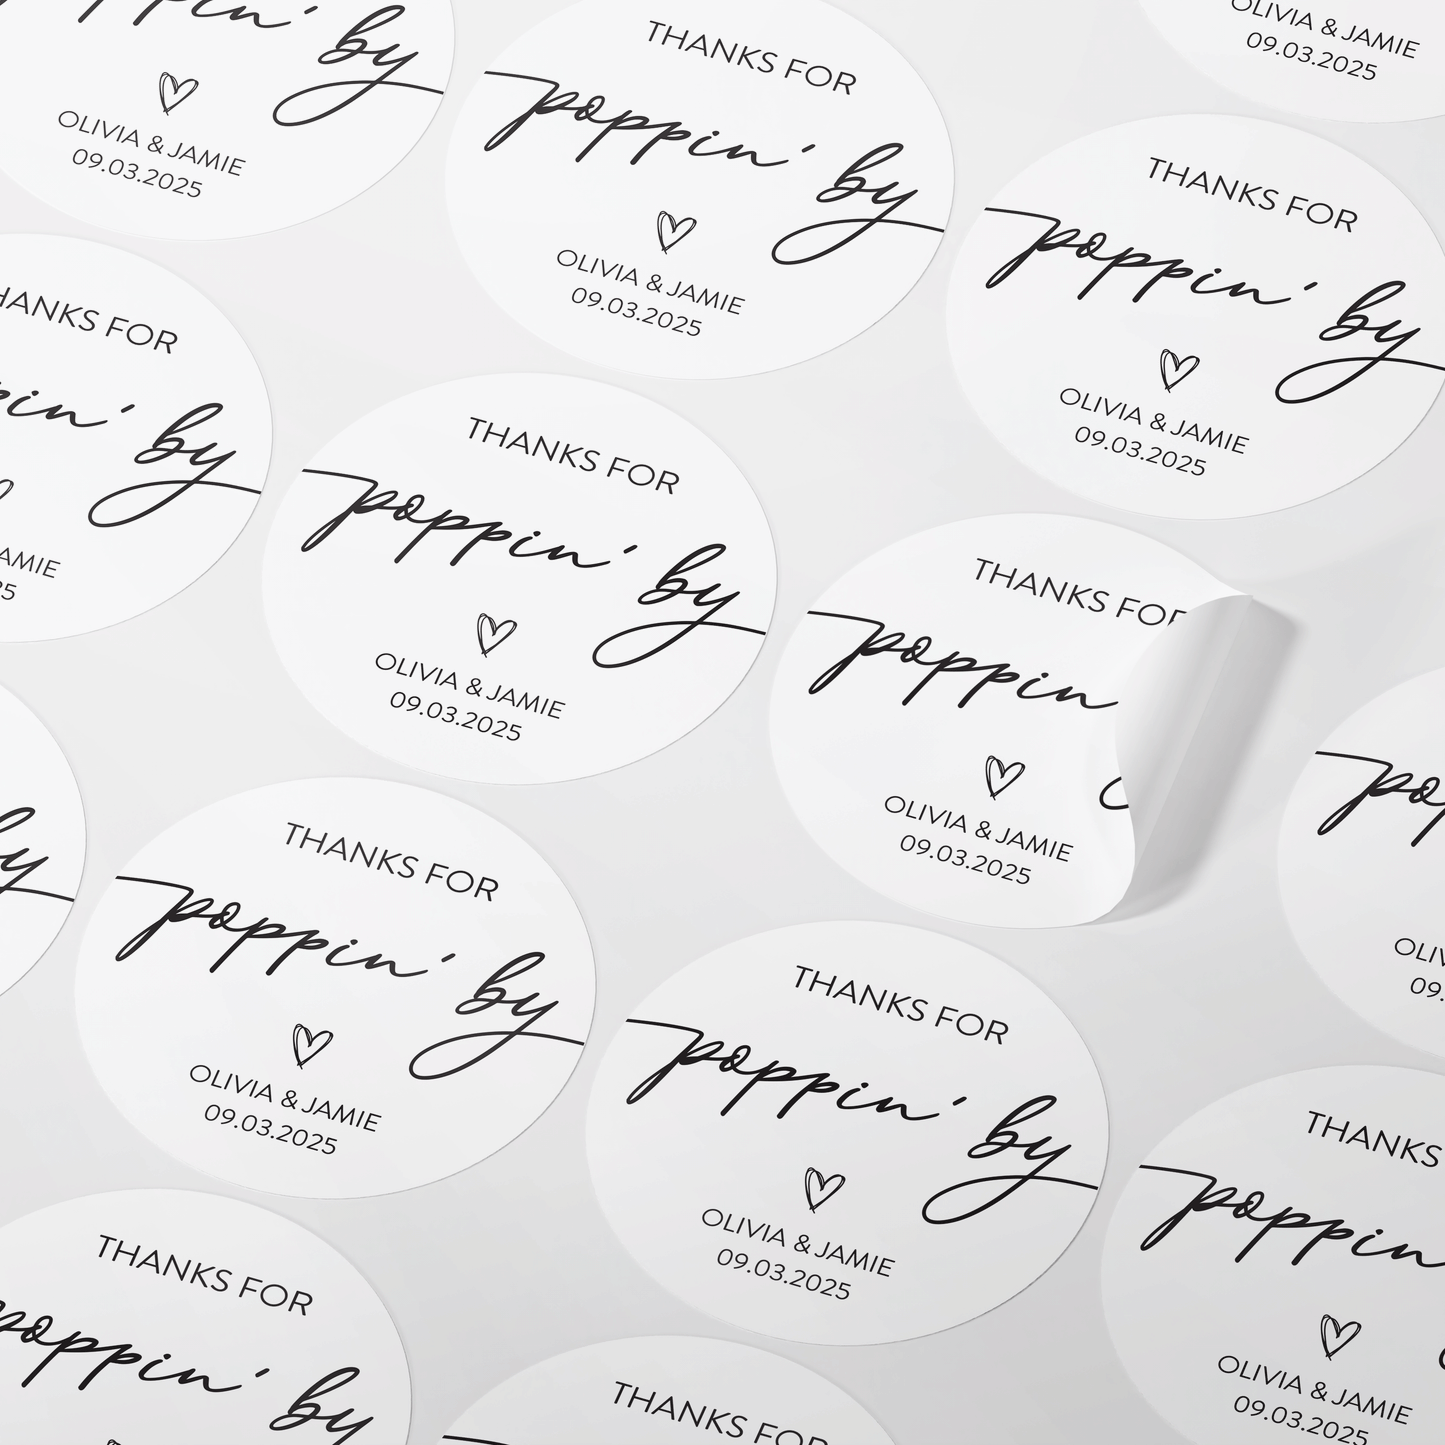 by
OLIVIA & JAMIE
09.03.2025
THANKS FOR
poppin' by
OLIVIA & JAMIE
09.03.2025
OLIVIA & JAMIE
09.03.2025
THANKS FOR
poppin' by
OLIVIA & JAMIE
09.03.2025
FOR
by
THANKS FOR
poppin' by
OLIVIA & JAMIE
09.03.2025
THANKS FOR
poppin
OLIVIA & JAMIE
09.03.2025
by
THANKS FOR
poppin' by
OLIVIA & JAMIE
09.03.2025
THANKS FOR
poppin' by
OLIVIA & JAMIE
09.03.2025
THANKS
poppin
OLIVIA & JAMIE
09.03.2025
THANKS FOR
poppin' by
THANKS FOR